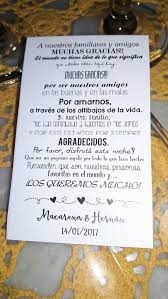 A nuestros familiares y amigos
MUCHAS GRACIAS!!
El mundo no tiene idea de lo que significa
que ustedes estén aquí hoy.
¡MUCHAS GRACIAS!!!
por ser nuestros amigos
en las buenas y en las malas.
Por amarnos,
a través de los altibajos de la vida.
Y nuestra familia,
que han contribuido a hacernos lo que somos
y por eso estamos por siempre
AGRADECIDOS.
Por favor, disfruta esta noche?
Que es un pequeño regalo por todo lo que han hecho
Recuerden que son nuestras personas
favoritas en el mundo y.....
¡LOS QUEREMOS MUCHO!
Macarena & Hernán
14/01/2017